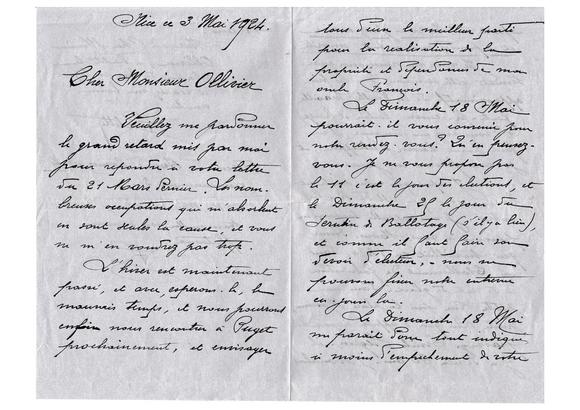 Nice ce 3 Mai 1924.
Cher Monsieur Ollivier
Veuillez me pardonner
le grand retard mis par moi
pour repondre à votre lettre
du 21 Mars dernier. Les nom-
breuses occupations qui m'absorbent
en sont seules la cause, et vous
ne m'en voudrez pas trop.
L'hiver est maintenant
passé, et avec, esperons-le, le
mauvais temps, et nous pourrons
enfin nous rencontrer à Puget
prochainement, et envisager
tous deux le meilleur parti
pour la realisation de la
propriété et dépendances de mon
oncle François.
Le Dimanche 18 Mai
pourrait-il vous convenir pour
notre rendez-vous? Qu'en pensez-
vous. Je ne vous propose pas
le 11 c'est le jour des elections, et
le Dimanche 25 le jour du
Scrutin de Ballotage (s'il y a lieu),
et comme il faut faire son
devoir d'électeur, - nous ne
pouvons fixer notre entrevue
ces jours-la.
Le Dimanche 18 Mai
me parait donc tout indiqué
à moins d'empechement de votre